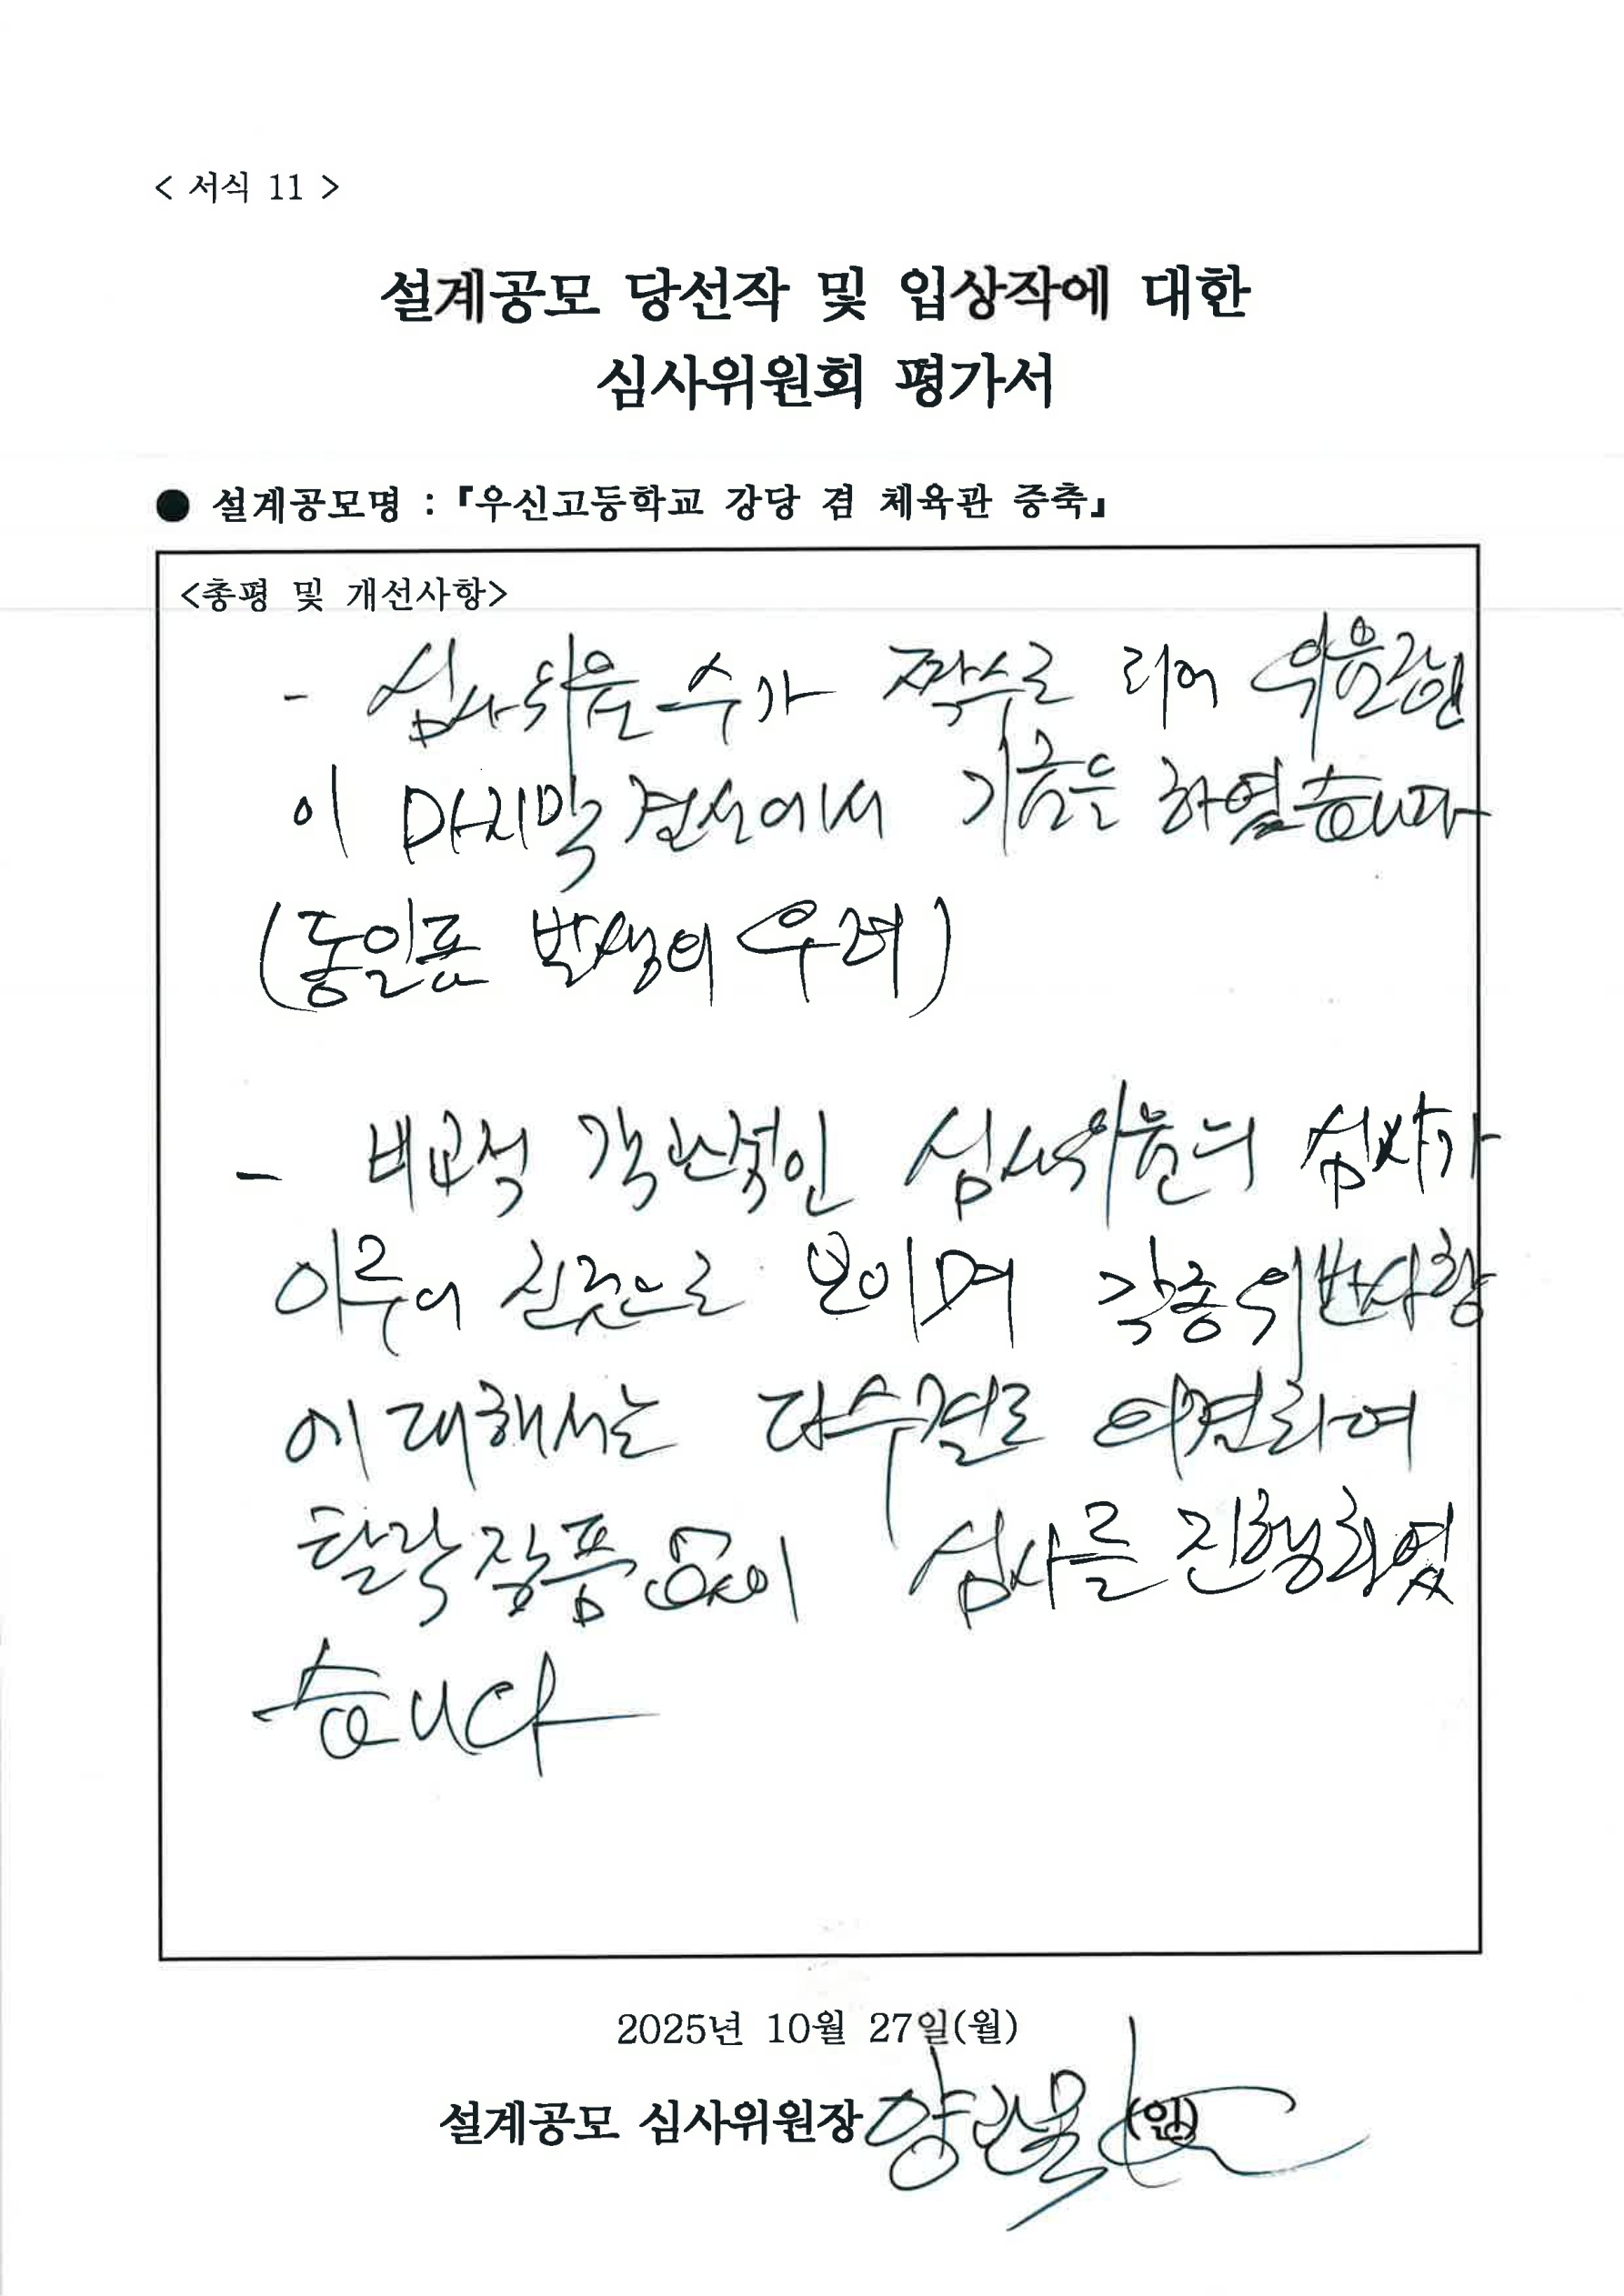 < 서식 11 >
설계공모 당선작 및 입상작에 대한
심사위원회 평가서
● 설계공모명 : 『우신고등학교 강당 겸 체육관 증축』
<총평 및 개선사항>
- 심사위원 수가 짝수로 되어 위원장
이 마지막 결선에서 기권을 하였습니다
(동일표 발생의 우려)
- 비교적 객관적인 심사위원의 심사가
이루어 진것으로 보이며 각종 위반사항
에 대해서는 다수결로 의결하여
탈락작품 없이 심사를 진행하였
습니다
2025년 10월 27일(월)
설계공모 심사위원장 (인)